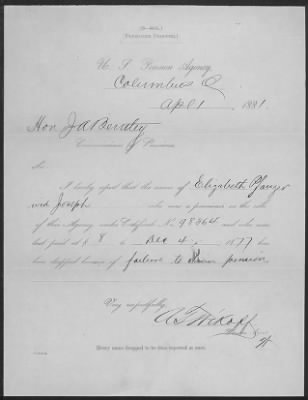 [PENSIONER DROPPED.]
U. S. Pension Agency,
Columbus O
Apl 1, 1881.
Hon. J A Bentley
Commissioner of Pensions.
Sir:
I hereby report that the name of Elizabeth Pfanzer
wid Joseph who was a pensioner on the rolls
of this Agency under Certificate No. 98364 and who was
last paid at $8 to Dec 4, 1877 has
been dropped because of failure to claim pension.
Very respectfully,
A T Wikoff
Every name dropped to be thus reported at once.